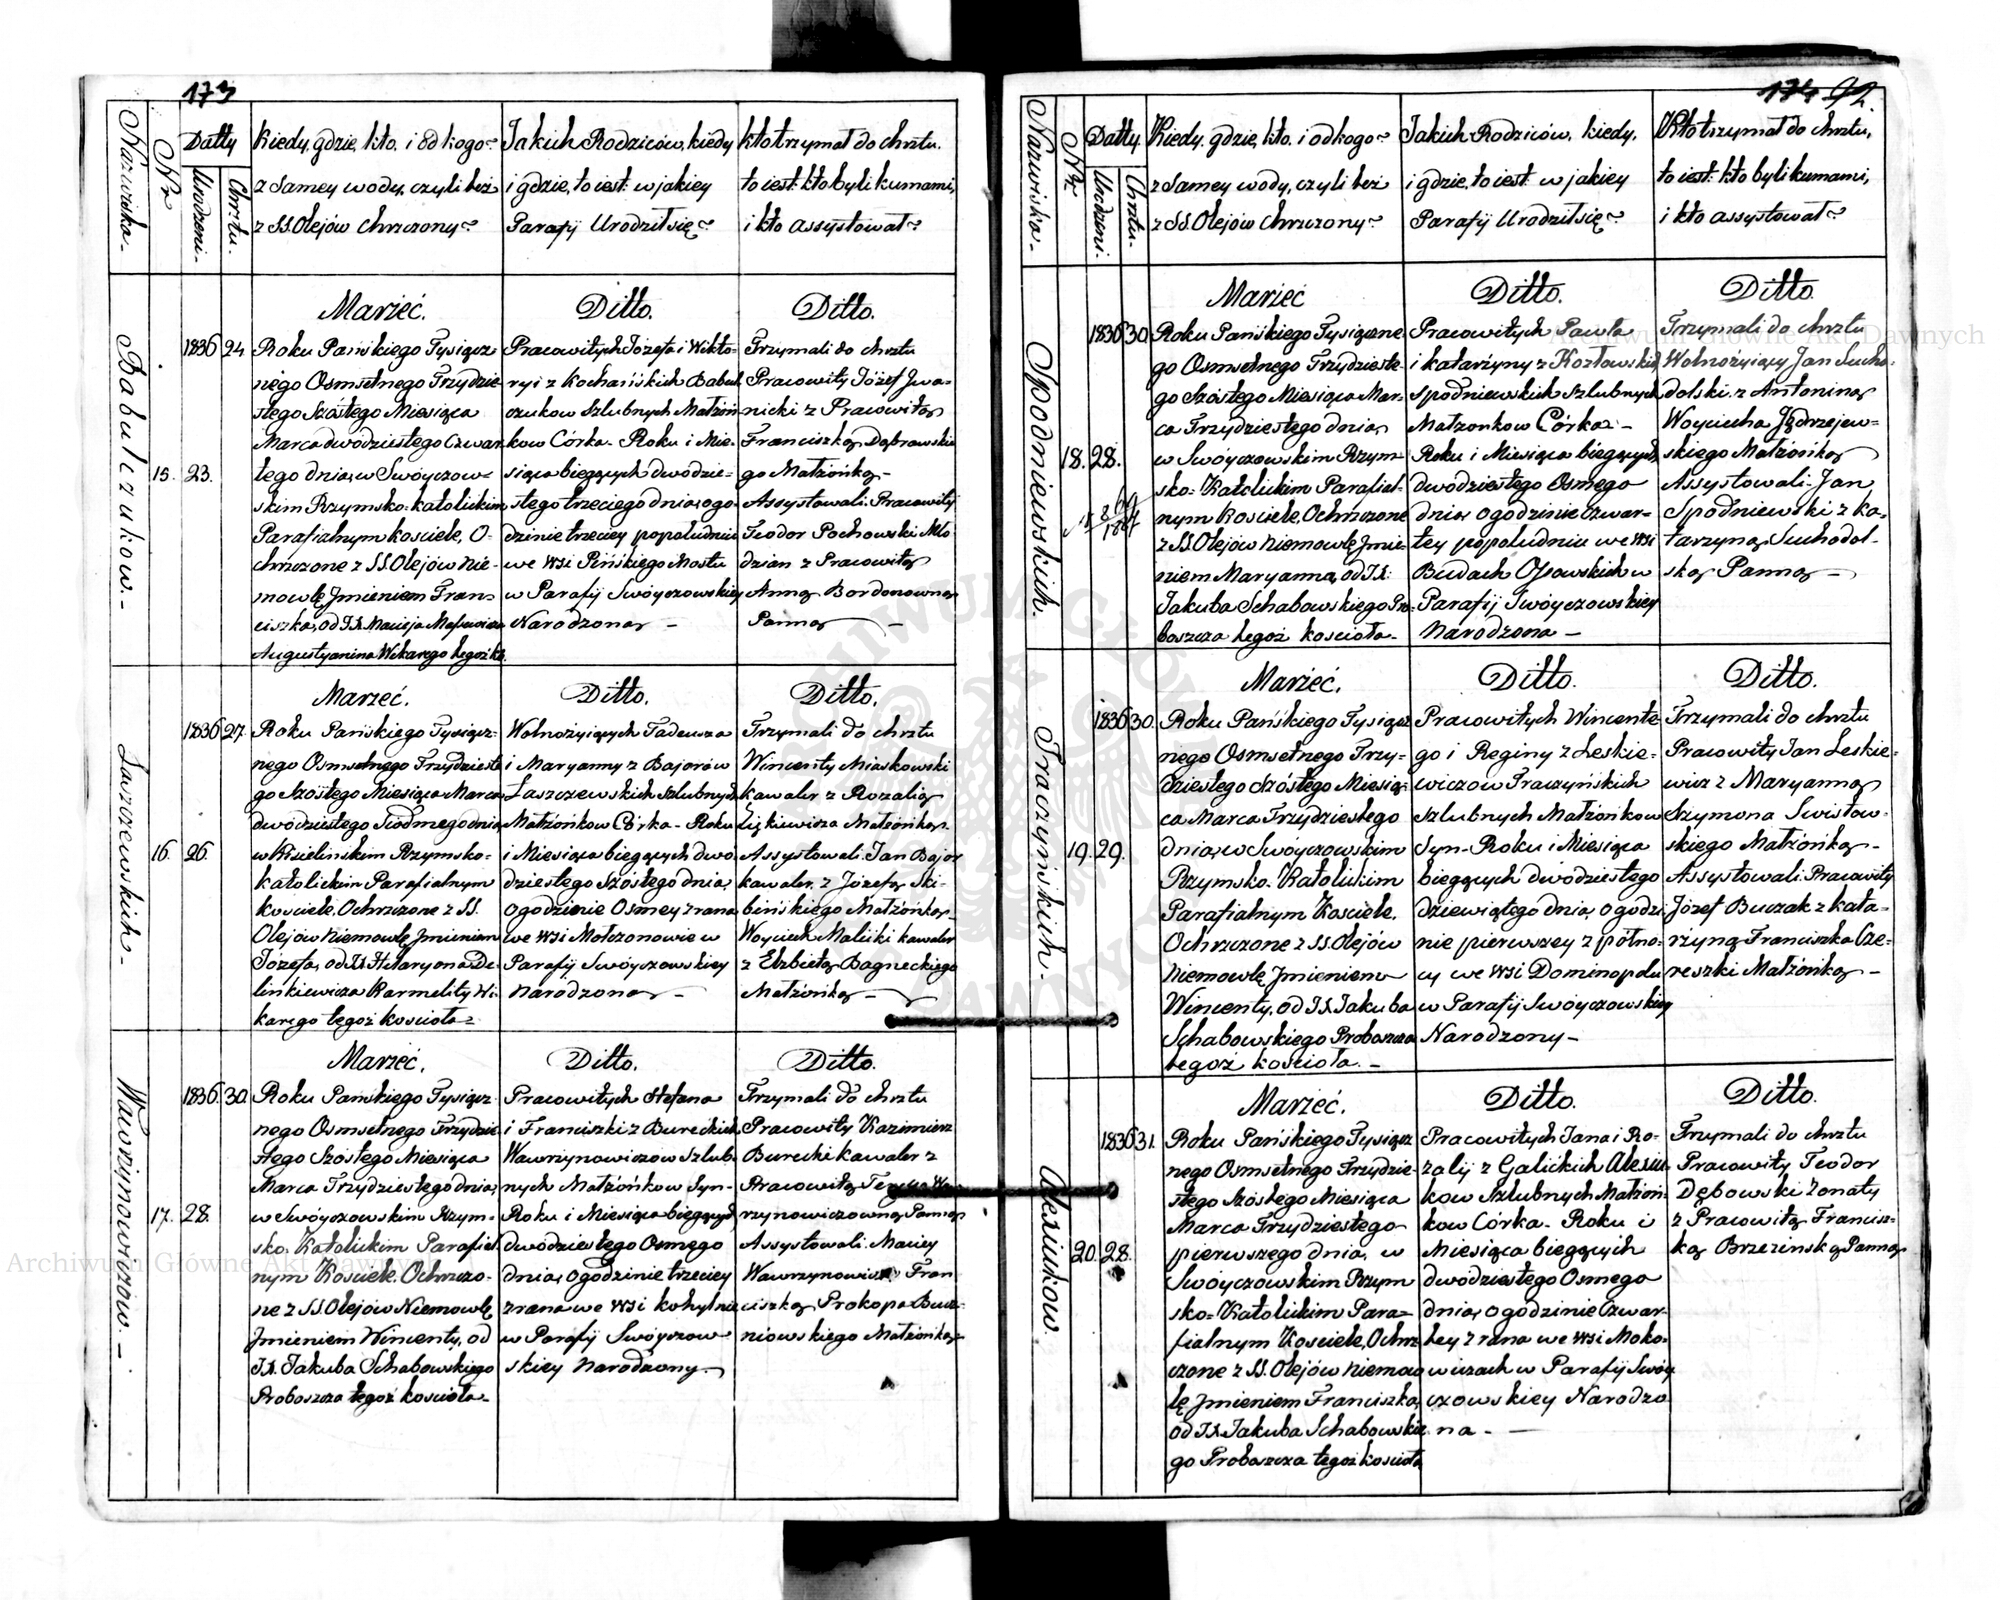 173
Nazwiska.
Nrz
Datty
Urodzeni.
Chrztu.
Kiedy, gdzie, kto, i od kogo?
z Samey wody, czyli też
z SS. Olejów Chrzczony?
Jakich Rodziców, kiedy
i gdzie, to iest: w jakiey
Parafij Urodził się?
Kto trzymał do chrztu.
to iest: kto byli kumami,
i kto assystował?
Babulczukow.
15.
1836
23.
24
Marzeć.
Roku Pańskiego Tysiącz
nego Osmsetnego Trzydzie
stego Szóstego Miesiąca
Marca dwódziestego Czwar
tego dnia, w Swóyczow-
skim Rzymsko-katolickim
Parafialnym kościele, O-
chrzczone z SS Olejów Nie-
mowlę Jmieniem Fran-
ciszka, od JX. Macieja
Augustyanina Wikarego tegoż ko.
Ditto.
Pracowitych Józefa i Wikto-
ryi z Kochańskich Babul
czukow Szlubnych Małżon
kow Córka. Roku i Mie-
siąca bieżących dwódzie-
stego trzeciego dnia, o go
dzinie trzeciey popołudniu
we wsi Pińskiego Mostu
w Parafij Swóyczowskiey
Narodzona -
Ditto.
Trzymali do chrztu
Pracowity Józef Jwa-
nicki z Pracowitą
Franciszką Dąbrowskie
go Małżonką -
Assystowali. Pracowity
Teodor Pochowski Mło
dzian z Pracowitą
Anną Bordonowną
Panną -
Łaszczewskich -
16.
1836
26.
27
Marzeć.
Roku Pańskiego Tysiącz-
nego Osmsetnego Trzydzieste
go Szóstego Miesiąca Marca
dwódziestego Siódmego dnia
w Kisielińskim Rzymsko-
katolickim Parafialnym
kościele, Ochrzczone z SS.
Olejów Niemowlę Jmieniem
Józefa, od JX. Hilaryona De-
linkiewicza Karmelity Wi
karego tegoż kościoła -
Ditto.
Wolnożyiących Tadeusza
i Maryanny z Bajorów
Łaszczewskich szlubnych
Małżonkow Córka - Roku
i Miesiąca bieżących dwó
dziestego Szóstego dnia,
o godzinie Osmey z rana
we wsi Mołczonowie w
Parafij Swóyczowskiey
Narodzona -
Ditto.
Trzymali do chrztu
Wincenty Miaskowski
kawaler z Rozalią
Małżonką.
Assystowali. Jan Bajor
kawaler z Józefą Ski-
bińskiego Małżonką
Woyciech Malicki kawaler
z Elżbietą Bagneckiego
Małżonką -
Wawrzynowiczow. -
17.
1836.
28.
30.
Marzeć.
Roku Pańskiego Tysiącz
nego Osmsetnego Trzydzie
stego Szóstego Miesiąca
Marca Trzydziestego dnia,
w Swóyczowskim Rzym-
sko-Katolickim Parafial
nym Kościele. Ochrzczo-
ne z SS. Olejów Niemowlę
Jmieniem Wincenty, od
JX. Jakuba Schabowskiego
Proboszcza tegoż kościoła -
Ditto.
Pracowitych Stefana
i Franciszki z Bureckich
Wawrzynowiczow szlub-
nych Małżonkow Syn-
Roku i Miesiąca bieżących
dwódziestego Osmego
dnia, o godzinie trzeciey
z rana we wsi kohylnie
w Parafij Swóyczow-
skiey Narodzony -
Ditto.
Trzymali do chrztu
Pracowity Kazimierz
Burecki kawaler z
Pracowitą Wa
rzynowiczowną Panną
Assystowali. Maciey
Wawrzynowicz z Fran
ciszką Prokopa
niowskiego Małżonką
174 92.
Nazwiska.
Nrz
Datty.
Urodzeni.
Chrztu.
Kiedy, gdzie, kto, i od kogo?
z Samey wody, czyli też
z SS. Olejów Chrzczony?
Jakich Rodziców, kiedy,
i gdzie, to iest: w jakiey
Parafij Urodził się?
Kto trzymał do chrztu,
to iest: kto byli kumami,
i kto assystował?
Spodniewskich.
18.
1836
28.
30.
Marzeć
Roku Pańskiego Tysiączne
go Osmsetnego Trzydzieste
go Szóstego Miesiąca Mar-
ca Trzydziestego dnia,
w Swóyczowskim Rzym-
sko-Katolickim Parafial-
nym Kościele, Ochrzczone
z SS. Olejów Niemowlę Jmie
niem Maryanna, od JX.
Jakuba Schabowskiego Pro-
boszcza tegoż kościoła -
Ditto.
Pracowitych Pawła
i Katarzyny z Kozłowskich
Spodniewskich Szlubnych
Małżonkow Córka -
Roku i Miesiąca bieżących
dwódziestego Osmego
dnia, o godzinie Czwar-
tey popołudniu we wsi
Budach Ossowskich w
Parafij Swóyczowskiey
Narodzona -
Ditto.
Trzymali do chrztu
Wolnożyiący Jan Sucho-
dolski z Antoniną
Woyciecha Jędrzejew-
skiego Małżonką
Assystowali. Jan
Spodniewski z Ka-
tarzyną Suchodol-
ską Panną -
Traczyńskich.
19.
1836
29.
30.
Marzeć.
Roku Pańskiego Tysiącz
nego Osmsetnego Trzy-
dziestego Szóstego Miesią-
ca Marca Trzydziestego
dnia, w Swóyczowskim
Rzymsko-Katolickim
Parafialnym Kościele,
Ochrzczone z SS. Olejów
Niemowlę Jmieniem
Wincenty, od JX. Jakuba
Schabowskiego Proboszcza
tegoż kościoła. -
Ditto.
Pracowitych Wincente
go i Reginy z Leskie-
wiczow Traczyńskich
szlubnych Małżonkow
Syn- Roku i Miesiąca
bieżących dwódziestego
dziewiątego dnia, o godzi
nie pierwszey z półno-
cy we wsi Dominopolu
w Parafij Swóyczowskiey
Narodzony -
Ditto.
Trzymali do chrztu
Pracowity Jan Leskie-
wicz z Maryanną
Szymona Swisłow-
skiego Małżonką -
Assystowali. Pracowity
Józef Buczak z Kata-
rzyną Franciszka Cze-
reszki Małżonką -
Alexiukow.
20.
1836
28.
31.
Marzeć.
Roku Pańskiego Tysiącz
nego Osmsetnego Trzydzie-
stego Szóstego Miesiąca
Marca Trzydziestego
pierwszego dnia, w
Swóyczowskim Rzym
sko-Katolickim Para-
fialnym Kościele, Ochrz-
czone z SS. Olejów Niemow
lę Jmieniem Franciszka,
od JX. Jakuba Schabowskie
go Proboszcza tegoż kościoła
Ditto.
Pracowitych Jana i Ro-
zalij z Galickich Alexiu
kow Szlubnych Małżon-
kow Córka - Roku i
Miesiąca bieżących
dwódziestego Osmego
dnia, o godzinie Czwar
tey z rana we wsi Moko-
wiczach w Parafij Swóy
czowskiey Narodzo
na. -
Ditto.
Trzymali do chrztu
Pracowity Teodor
Dębowski żonaty
z Pracowitą Francisz-
ką Brzezinską Panną
Archiwum Główne Akt Dawnych
Archiwum Główne Akt Dawnych